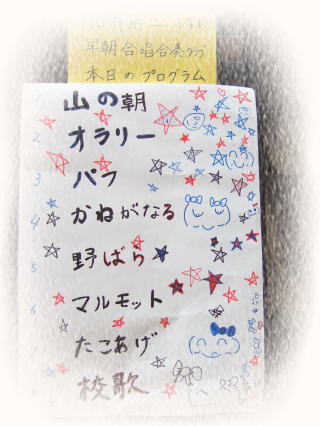 早朝合唱合奏クラブ
本日のプログラム
山の朝
2 オラリー
3 パフ
4 かねがなる
5 野ばら
6 マルモット
たこあげ
校歌